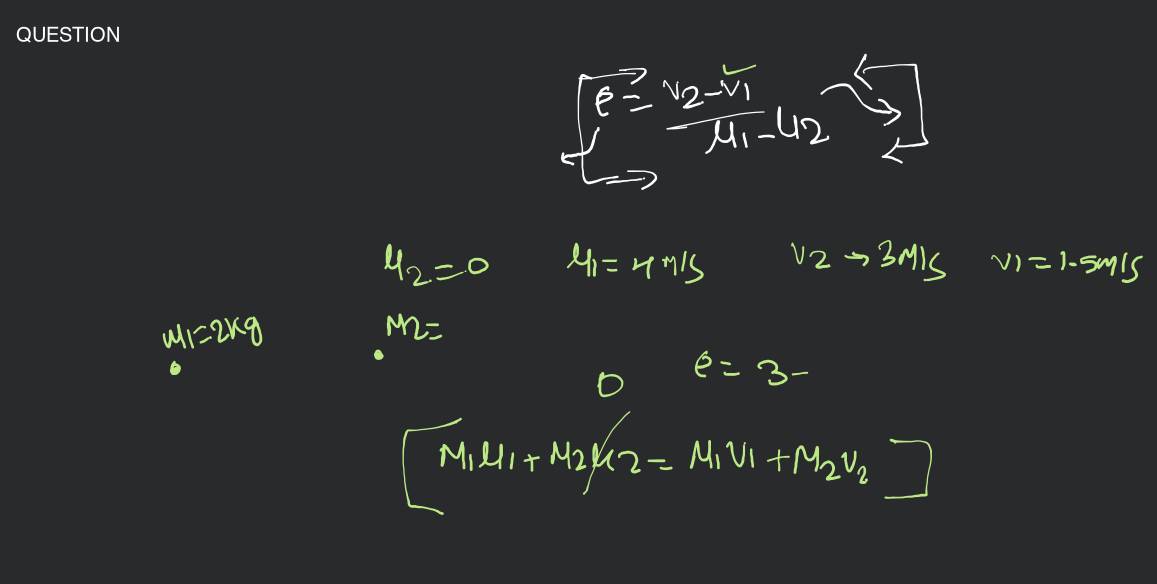 QUESTION
e = v2-v1
u1-u2
u2=0 u1=4m/s v2→3m/s v1=1.5m/s
m1=2kg M2=
e = 3-
0
[M1u1+M2u2= M1V1+M2V2]